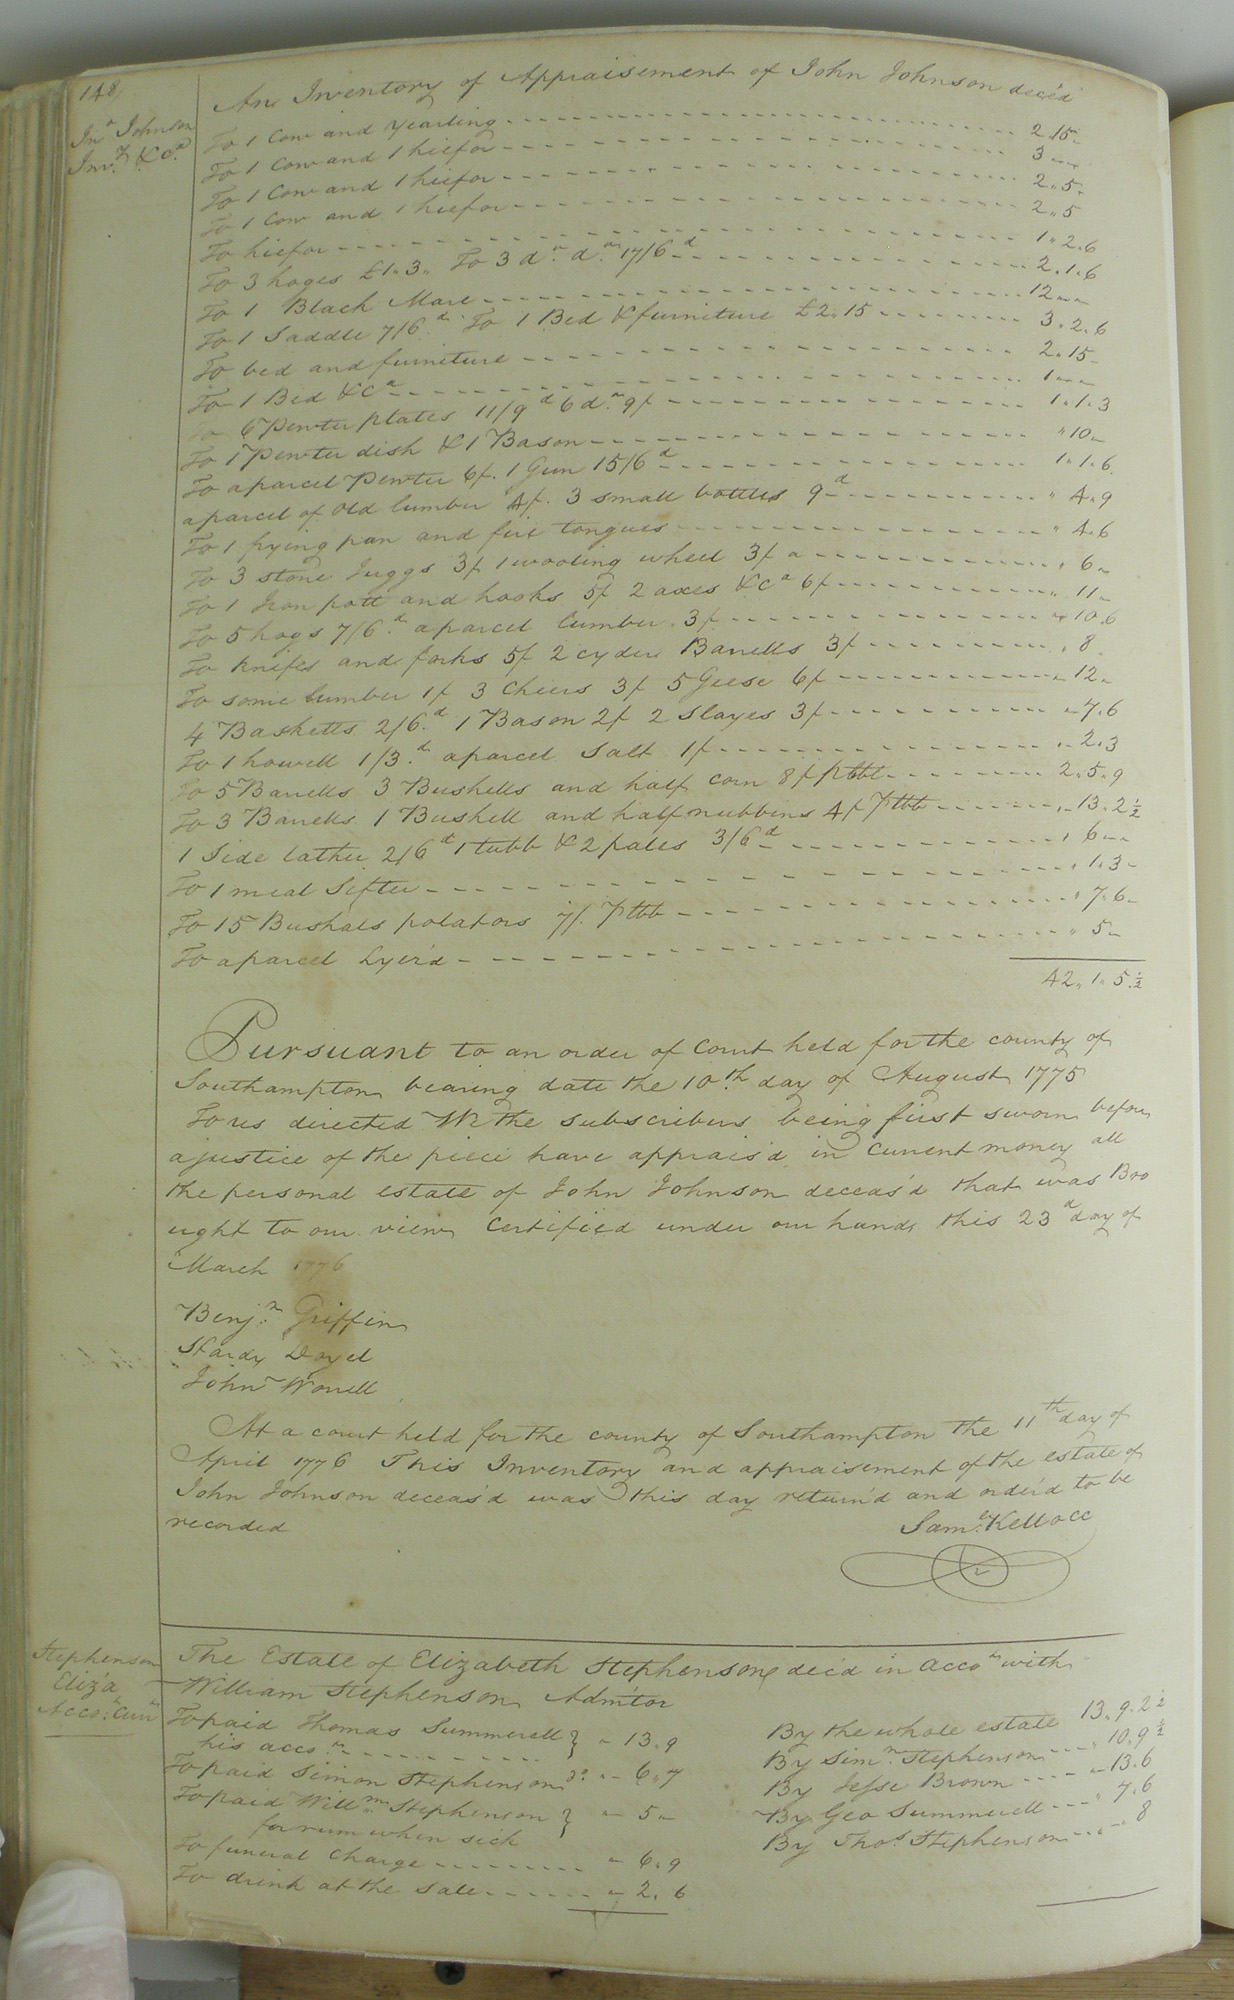 148
An Inventory of Appraisement of John Johnson dece'd
Jnº Johnson
Invʸ &Cª
To 1 Cow and yearling 2.15.
To 1 Cow and 1 hiefor 3
To 1 Cow and 1 hiefor 2.5.
To 1 Cow and 1 hiefor 2.5
To hiefor 1.2.6
To 3 hoges £1.3. To 3 dº dº 17/6d 2.1.6
To 1 Black Mare 12
To 1 Saddle 7/6d To 1 Bed & furniture £2.15 3.2.6
To bed and furniture 2.15
To 1 Bed &Cª 1
To 6 Pewter plates 11/9d 6 dº 9/ 1.1.3
To 1 Pewter dish & 1 Bason "10
To a parcel Pewter 6/. 1 Gun 15/6d 1.1.6
a parcel of old lumber 4/. 3 small bottles 9d " 4.9
To 1 frying pan and fire tongues " 4.6
To 3 stone Juggs 3/ 1 wooling wheel 3/ 6
To 1 Iron pott and hooks 5/ 2 axes &Cª 6/ 11
To 5 hogs 7/6d a parcel lumber 3/ 10.6
To knifes and forks 5/ 2 cyder Barells 3/ 8
To some lumber 1/ 3 Cheers 3/ 5 Geese 6/ 12
4 Basketts 2/6d 1 Bason 2/ 2 Slayes 3/ 7.6
To 1 howell 1/3d a parcel Salt 1/ 2.3
To 5 Barells 3 Bushells and half corn 8/ pbbl 2.5.9
To 3 Barells 1 Bushell and half nubbins 4/ Pbb 13.2½
1 Side lather 2/6d 1 tubb & 2 pales 3/6d 6
To 1 meal Sifter 1.3
To 15 Bushals potators Pbb 7.6
To a parcel Lyer'd 5
42.1.5½
Pursuant to an order of Court held for the county of
Southampton bearing date the 10th day of August 1775
To us directed We the subscribers being first sworn before
a justice of the piece have apprais'd in current money all
the personal estate of John Johnson deceas'd that was Bro
ught to our view Certified under our hands this 23d day of
March 1776
Benjn Griffin
Hardy Doyel
John Worrell
At a court held for the county of Southampton the 11th day of
April 1776 This Inventory and appraisement of the estate of
John Johnson deceas'd was this day return'd and order'd to be
recorded
Saml Kello CC
Stephenson
Eliz'a
Accot Currt
The Estate of Elizabeth Stephenson dec'd in Accot with
William Stephenson Adm'tor
To paid Thomas Summerell } 13.9
his accot
To paid Simon Stephenson do 6.7
To paid Willm Stephenson } 5
for rum when sick
To funeral Charge 6.9
To drink at the Sale 2.6
By the whole estate 13.9.2½
By Simn Stephenson 10.9½
By Jesse Brown 13.6
By Geo Summerell 7.6
By Thos Stephenson 8